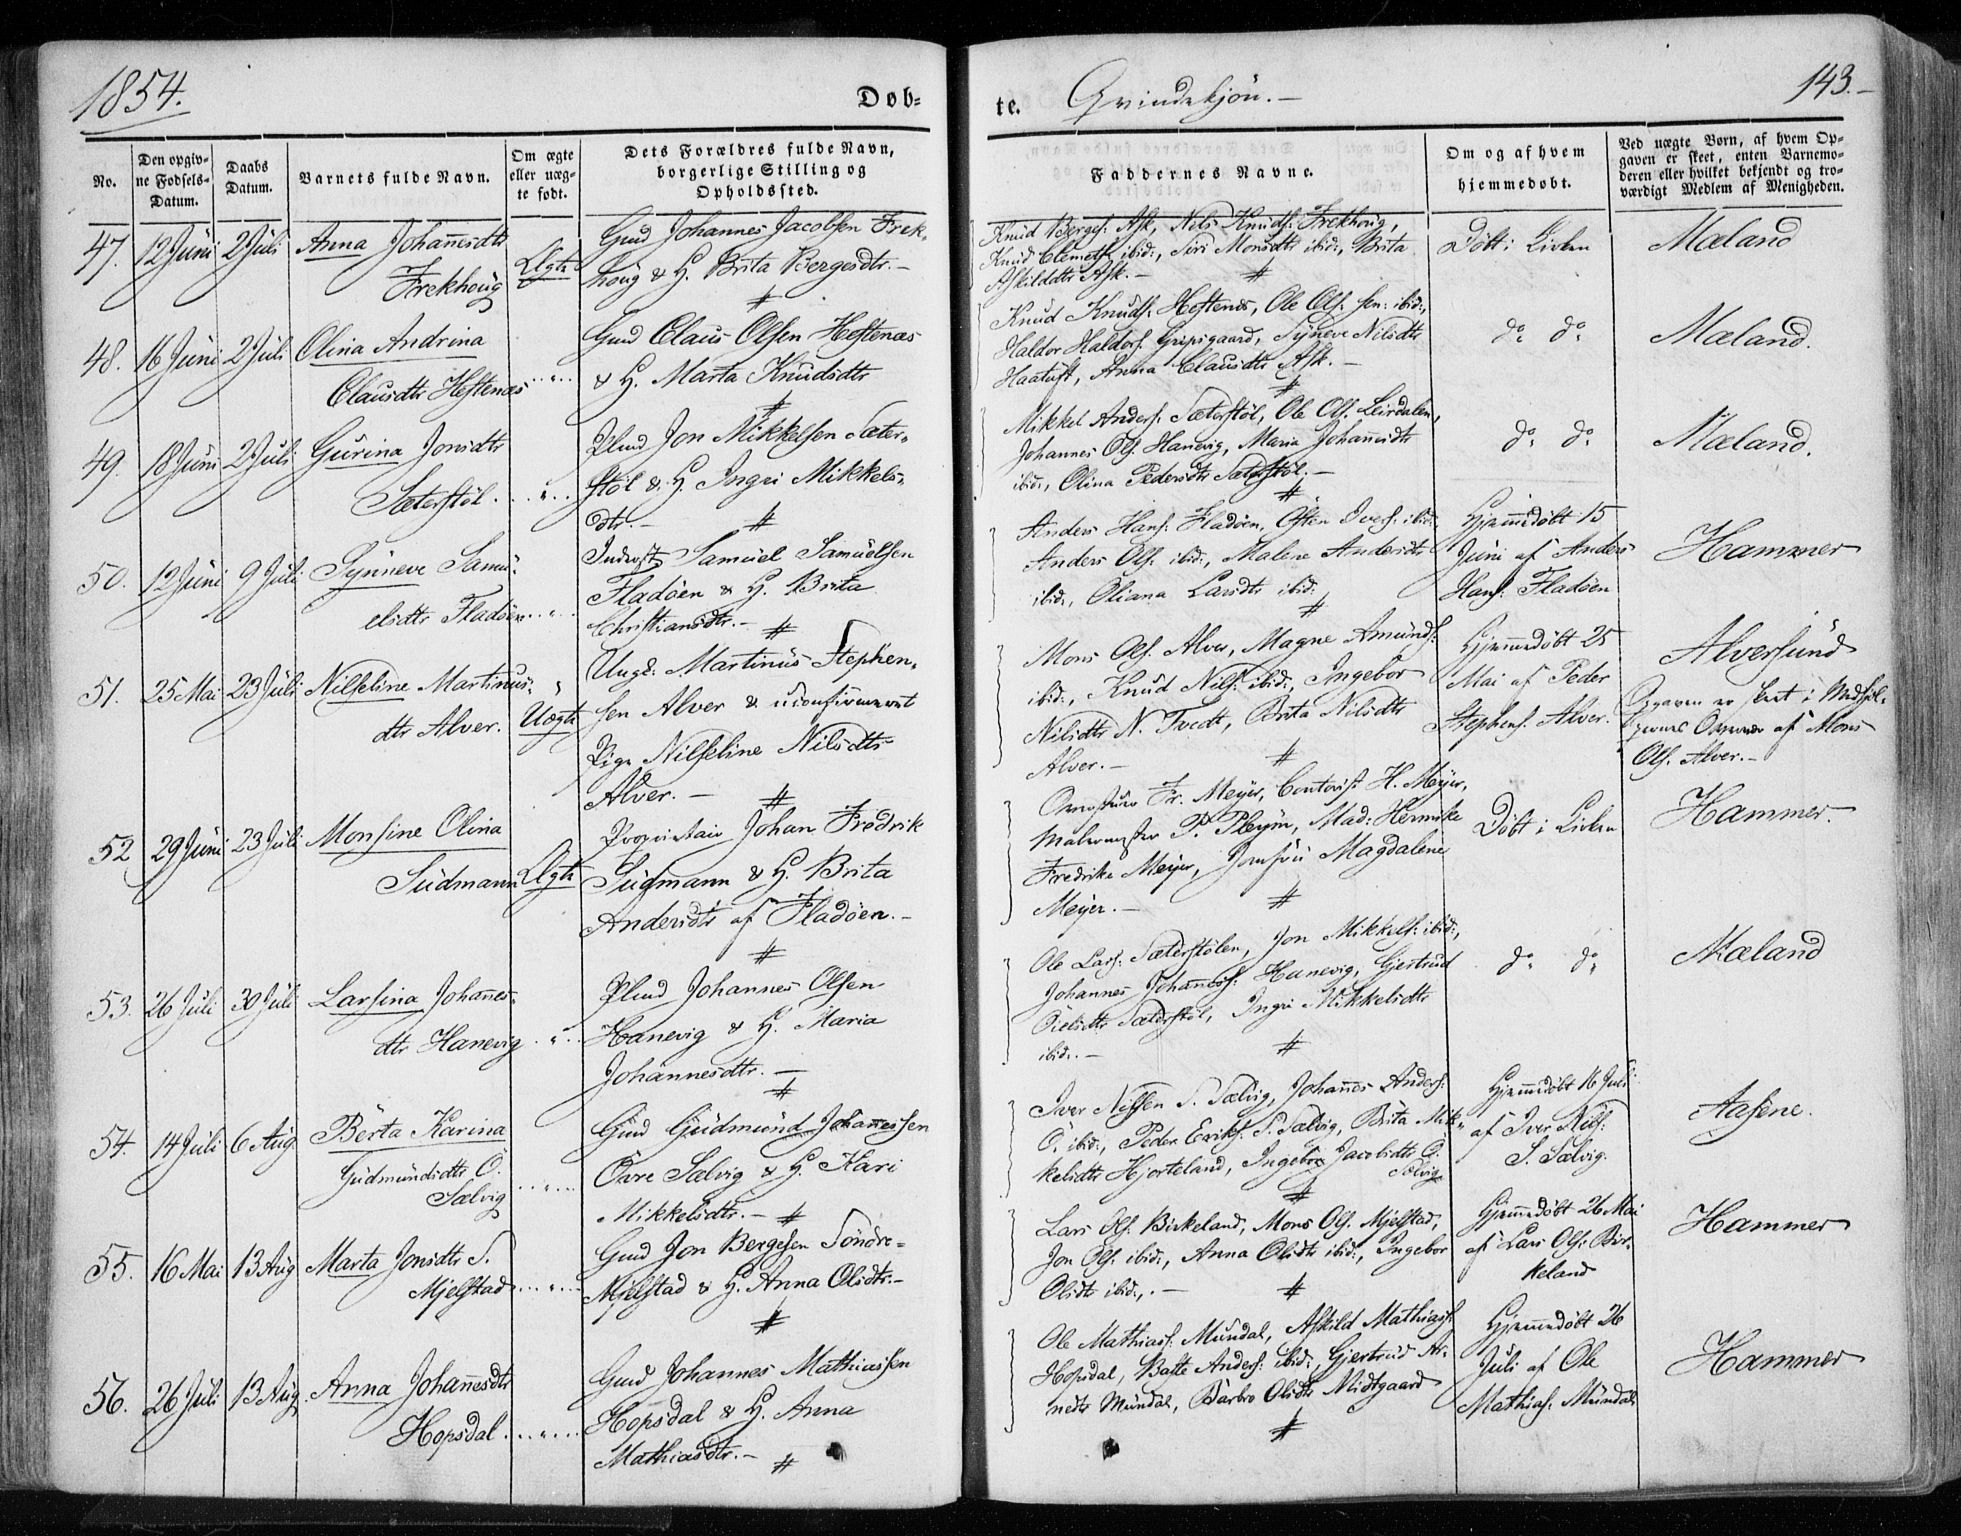 1854.
Døb-
te. Qvindekjön.-
143.-
No.
Den opgiv-
ne Fødsels-
Datum.
Daabs
Datum.
Barnets fulde Navn.
Om ægte
eller uæg-
te født.
Dets Forældres fulde Navn,
borgerlige Stilling og
Opholdssted.
Faddernes Navne.
Om og af hvem
hjemmedøbt.
Ved uægte Børn, af hvem Op-
gaven er skeet, enten Barnemo-
deren eller hvilket bekjendt og tro-
værdigt Medlem af Menigheden.
47. 12 Juni 2 Juli Anna Johannesdtr
Frekhoug
Ægte
Gmd Johannes Jacobsen Frek-
houg & H. Brita Bergesdtr.-
Knud Berges. Ask, Nils Knuds. Frekhoug,
Knud Clemets. ibid:, Siri Monsdtr ibid:, Brita
Askildsdtr Ask.-
Döbt i Kirken
Mæland
48. 16 Juni 2 Juli Olina Andrina
Clausdtr Hestenæs
Gmd Claus Olsen Hestenæs
& H. Marta Knudsdtr
Knud Knuds. Hestenæs, Ole Ols. sen: ibid:,
Haldor Haldors. Gripsgaard, Synneve Nilsdtr
Haatuft, Anna Clausdtr Ask.-
do do
Mæland.
49. 18 Juni 2 Juli Gurina Jonsdtr
Sæterstöl.
Plmd Jon Mikkelsen Sæter-
stöl & H. Ingri Mikkels-
dtr.-
Mikkel Anders. Sæterstöl, Ole Ols. Leirdalen,
Johannes Ols. Hanevig, Maria Johannisdtr
ibid:, Olina Pedersdtr Sæterstöl.-
do do
Mæland.
50. 12 Juni 9 Juli Synneve Samu-
elsdtr Fladöen
Inderst Samuel Samuelsen
Fladöen & H. Brita
Christiansdtr.-
Anders Hans. Fladöen, Östen Ivers. ibid:,
Anders Ols. ibid:, Malene Andersdtr
ibid:, Oliana Larsdtr ibid:
Hjemmedöbt 15
Juni af Anders
Hans. Fladöen
Hammer
51. 25 Mai 23 Juli Nilseline Martinus-
dtr Alver.
Uægte
Ungk: Martinus Stephen-
sen Alver & uconfirmeret
Pige Nilseline Nilsdtr
Alver.-
Mons Ols. Alver, Magne Amunds.
ibid:, Knud Nils. ibid:, Ingebor
Nilsdtr N. Tvedt, Brita Nilsdtr
Alver.-
Hjemmedöbt 25
Mai af Peder
Stephens. Alver.
Alversund
Opgaven er skeet i Medföl-
gernes Overvær af Mons
Ols. Alver.-
52 29 Juni 23 Juli Monsine Olina
Sudmann
Ægte
Proprietair Johan Fredrik
Sudmann & H. Brita
Andersdtr af Fladöen.-
Fr. Meyer, Contorist H. Meyer,
Malermester P. Pleym, Mad: Henrike
Fredrike Meyer, Jomfru Magdalene
Meyer.-
Döbt i Kirken
Hammer.
53. 26 Juli 30 Juli Larsina Johannes-
dtr Hanevig
Plmd Johannes Olsen
Hanevig & H. Maria
Johannesdtr.-
Ole Lars. Sæterstölen, Jon Mikkels. ibid:,
Johannes Johanness. Hanevig, Gjertrud
Sæterstöl, Ingri Mikkelsdtr
ibid:-
do do
Mæland
54. 14 Juli 6 Aug. Berta Karina
Gudmundsdtr Ö.
Sælvig
Gmd Gudmund Johannessen
Övre Sælvig & H. Kari
Mikkelsdtr.-
Iver Nilssen S. Sælvig, Johannes Anders.
Ö. ibid:, Peder Eriks. S. Sælvig, Brita Mik-
kelsdtr Hjorteland, Ingebor Jacobsdtr Ö.
Sælvig
Hjemmedöbt 16 Juli
af Iver Nils.
S. Sælvig.
Aasene.
55. 16 Mai 13 Aug Marta Jonsdtr S.
Mjelstad
Gmd Jon Bergesen Söndre-
Mjelstad & H. Anna Olsdtr.-
Lars Ols. Birkeland, Mons Ols. Mjelstad,
Jon Ols. ibid:, Anna Olsdtr ibid:, Ingebor
Olsdtr ibid:,.-
Hjemmedöbt 26 Mai
af Lars Ols. Bir-
keland
Hammer
56. 26 Juli 13 Aug. Anna Johannesdtr
Hopsdal
Gmd Johannes Mathiassen
Hopsdal & H. Anna
Mathiasdtr.-
Ole Mathiass. Mundal, Askild Mathiass.
Hopsdal, Anders. ibid:, Gjertrud Ar-
nedtr Mundal, Barbro Olsdtr Midtgaard
Hjemmedöbt 26
Juli af Ole
Mathias. Mundal
Hammer